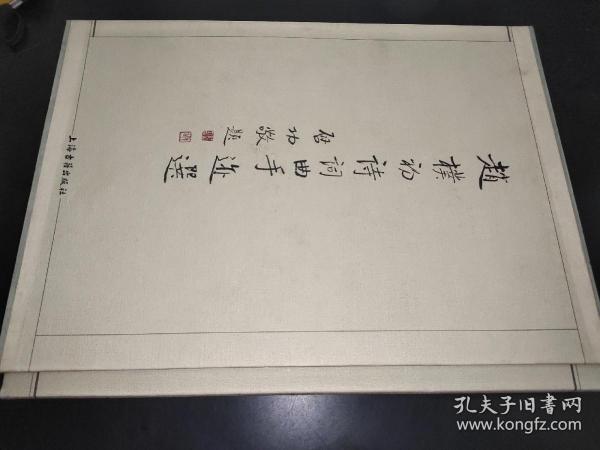 趙樸初詩詞曲手迹選
启功敬題
上海古籍出版社
孔夫子旧书网
www.kongfz.com